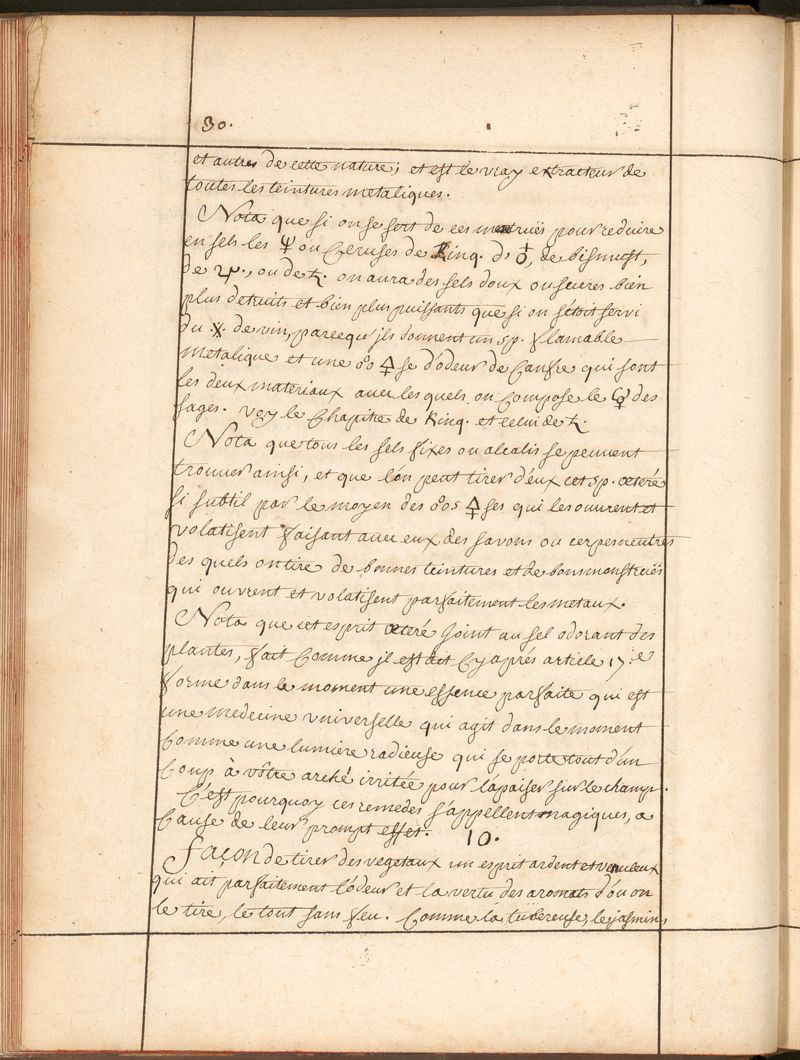 30.
et autres de cette nature; et est le vray extracteur de
toutes les teintures metaliques.
Nota que si on se sert de ces menstruës pour reduire
en sels les Ψ ou Ceruses de Kinq. de ♁, de bismust,
de ♃., ou de ♄. on aura des sels doux ou sucres bien
plus detruits et bien plus puissants que si on s'étoit servi
du .x. de vin, parcequ'jls donnent un sp. flamable
metalique et une o°o 🜍 se d'ódeur de Canfre qui sont
les deux materiaux avec les quels on Compose le ☿ des
sages. Voy le Chapitre de Kinq. et celui de ♄.
Nota que tous les sels fixes ou alcalis se peuvent
trouver ainsi, et que l'ón peut tirer d'éux cet sp. æteré
si subtil par le moyen des o°os 🜍 ses qui les ouvrent et
volatisent faisant avec eux des savons ou
des quels on tire de bonnes teintures et de bons monstruës
qui ouvrent et volatisent parfaitement les metaux.
Nota que cet esprit æteré Joint au sel odorant des
plantes, fait Comme jl est dit Cy aprés article 17.e
forme dans le moment une essence parfaite qui est
une medecine vniverselle qui agit dans le moment
Comme une lumiere radieuse qui se porte tout d'ún
Coup à vôtre arché irritée pour l'ápaiser sur le champ.
C'est pourquoy ces remedes s'appellent magiques, a
Cause de leur prompt effet. 10.
Façon de tirer des vegetaux un esprit ardent et
qui ait parfaitement l'ódeur et la vertu des aromats d'óu on
le tire, le tout sans feu. Comme la tubereuse, le jasmin,